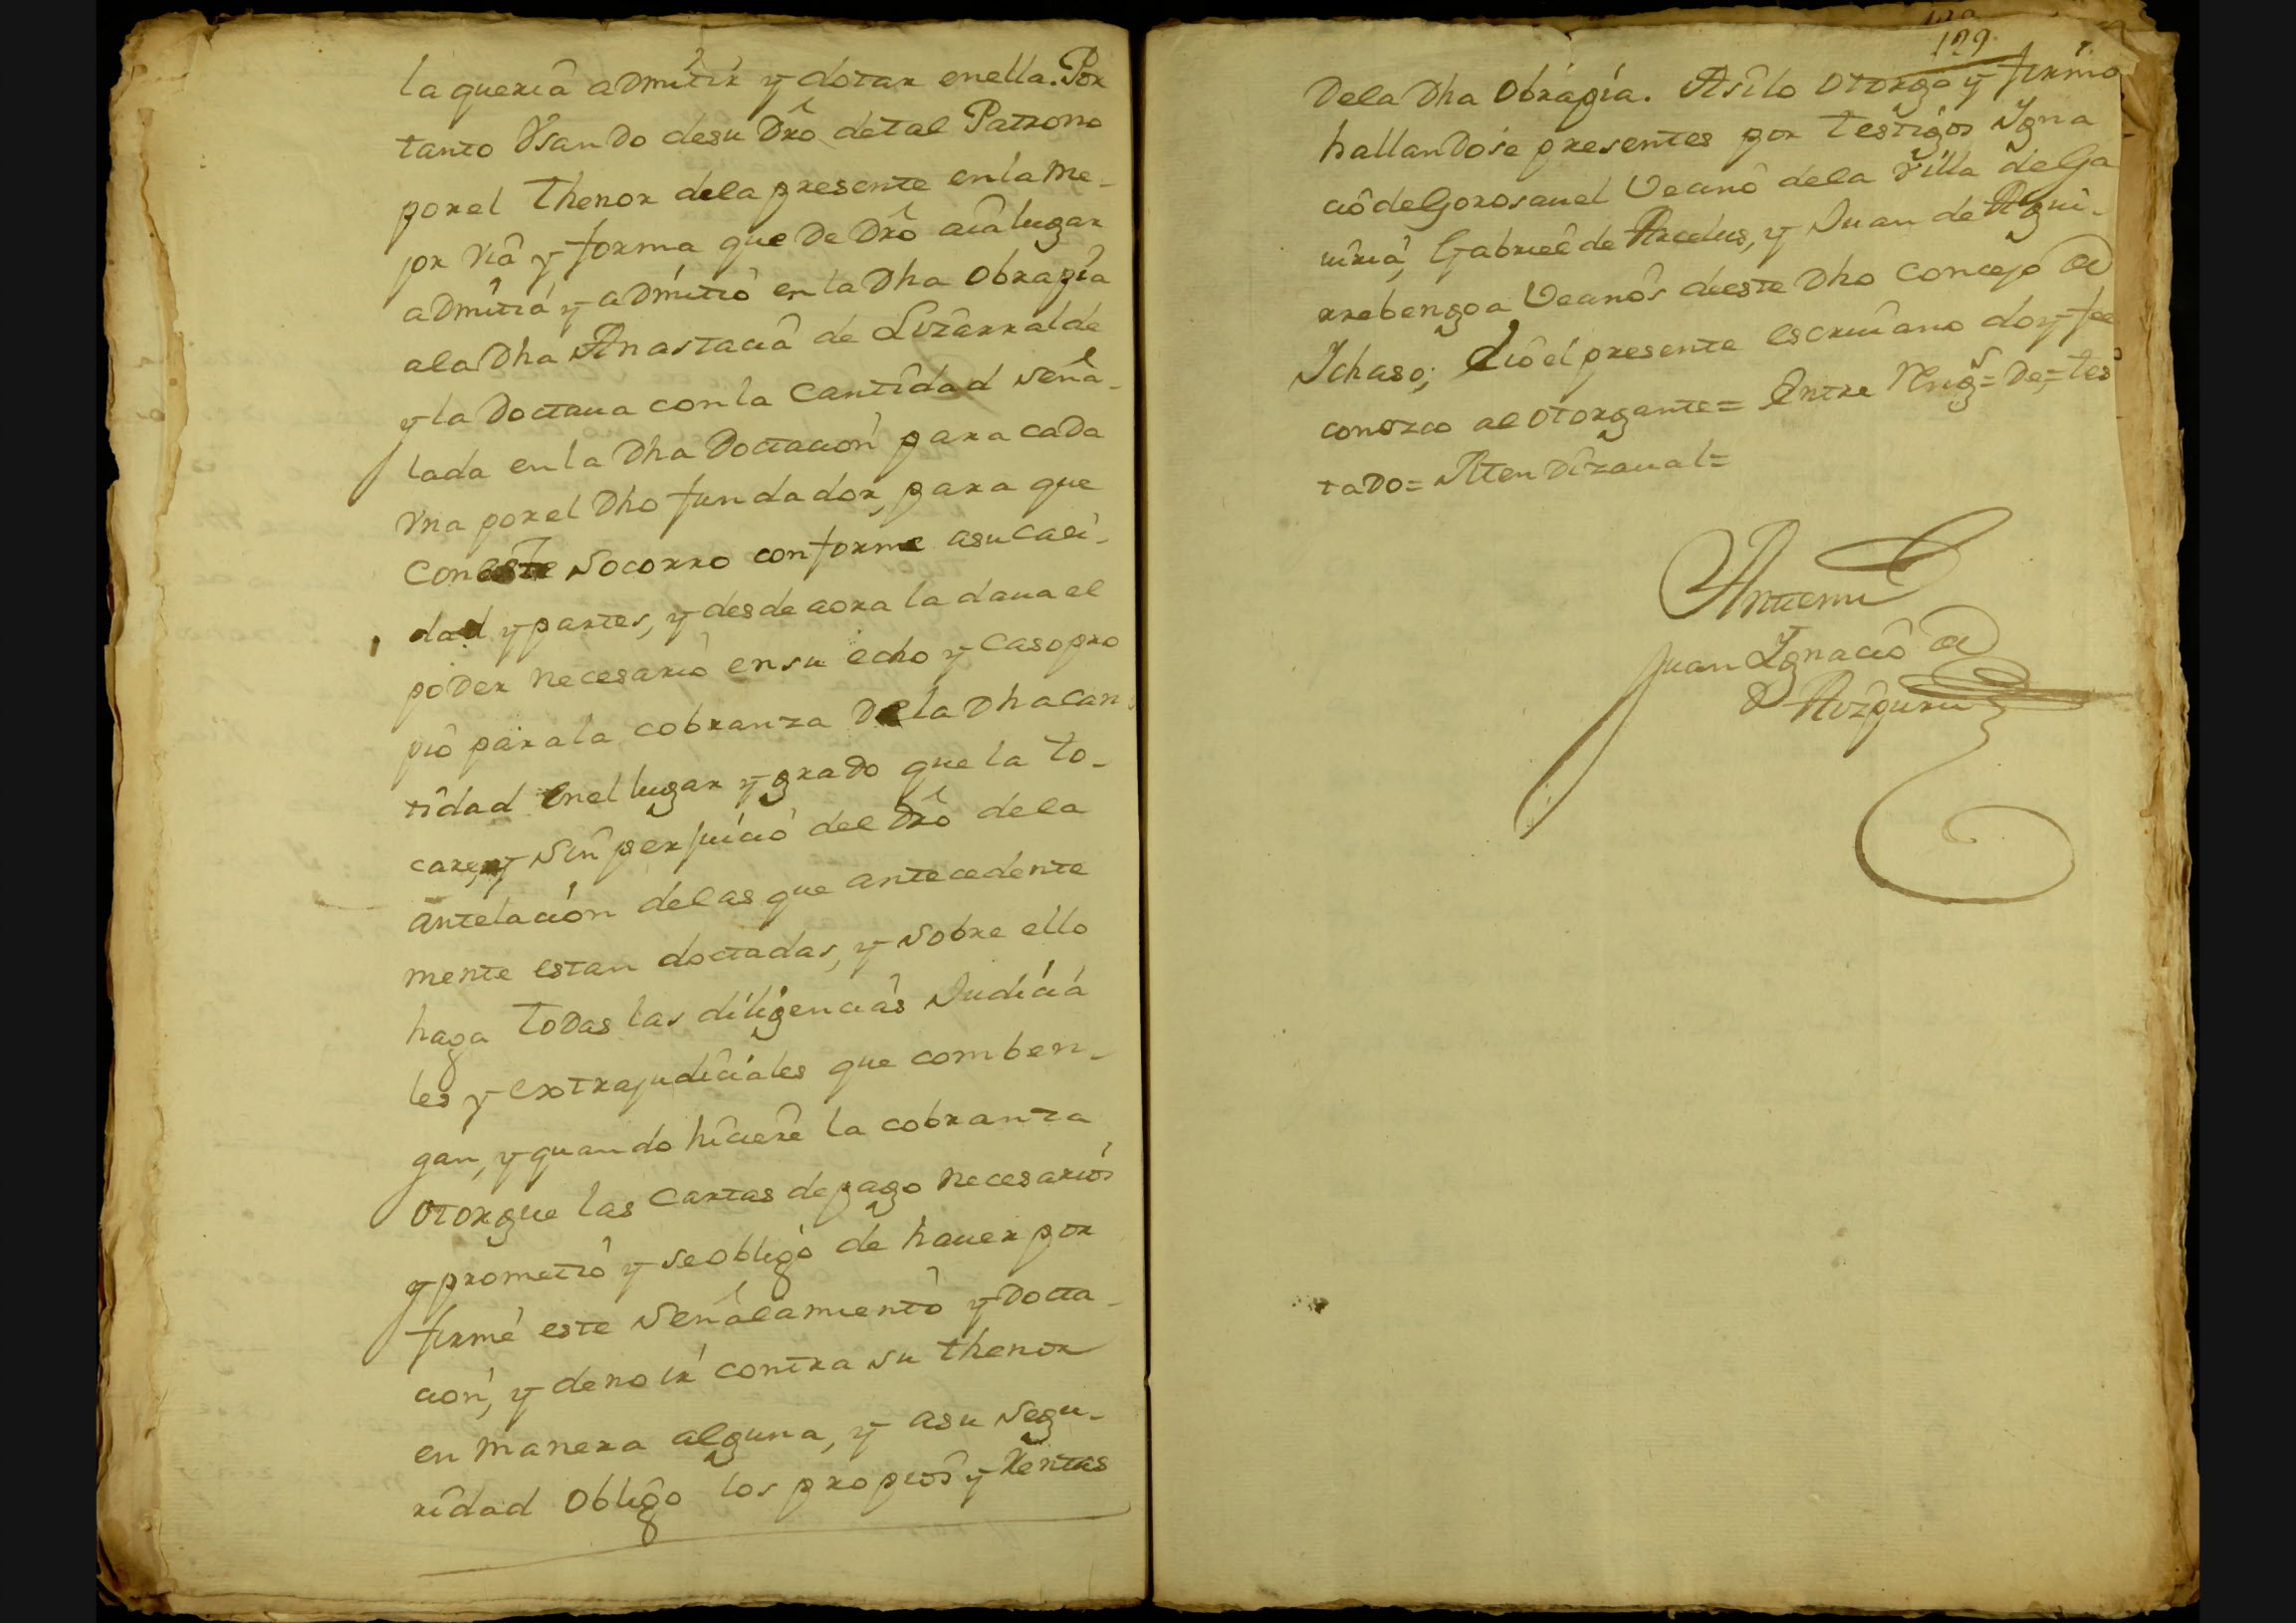 la queria admitir y dotar en ella. Por
tanto Vsando de su Dro de tal Patrono
por el thenor de la presente en la me-
jor via y forma que de Dro aia lugar
admitia y admitio en la Dha Obrapia
a la Dha Anastacia de Lizarralde
y la Doctaua con la Cantidad seña-
lada en la Dha Doctacion para cada
Vna por el Dho fundador, para que
con este socorro conforme a su cali-
dad y partes, y desde aora la daua el
poder necesario en su echo y caso pro
pio para la cobranza de la Dha can
tidad en el lugar y grado que la to-
care, y sin perjuicio del Dro de la
antelacion de las que antecedente
mente estan doctadas, y sobre ello
haga todas las diligencias Judicia
les y extrajudiciales que comben-
gan, y quando hiciere la cobranza
otorgue las cartas de pago necesarios
y prometio y se obligo de hauer por
firme este señalamiento y Docta-
cion, y de no ir contra su thenor
en manera alguna, y a su segu-
ridad obligo los propios y Rentas
129
De la Dha Obrapia. Asi lo otorgo y firmo
hallandose presentes por testigos Igna
cio de Gorosauel Vecino de la Villa de Ga
uiria, Gabriel de Arcelus, y Juan de Agui-
rrebengoa Vecinos deste Dho concejo de
Ichaso; e Io el presente escriuano doy fee
conozco al otorgante = Entre Rengs = De = tes
tado = Aten Dizaual =
Antemi
Juan Ignacio de
Aizpuru